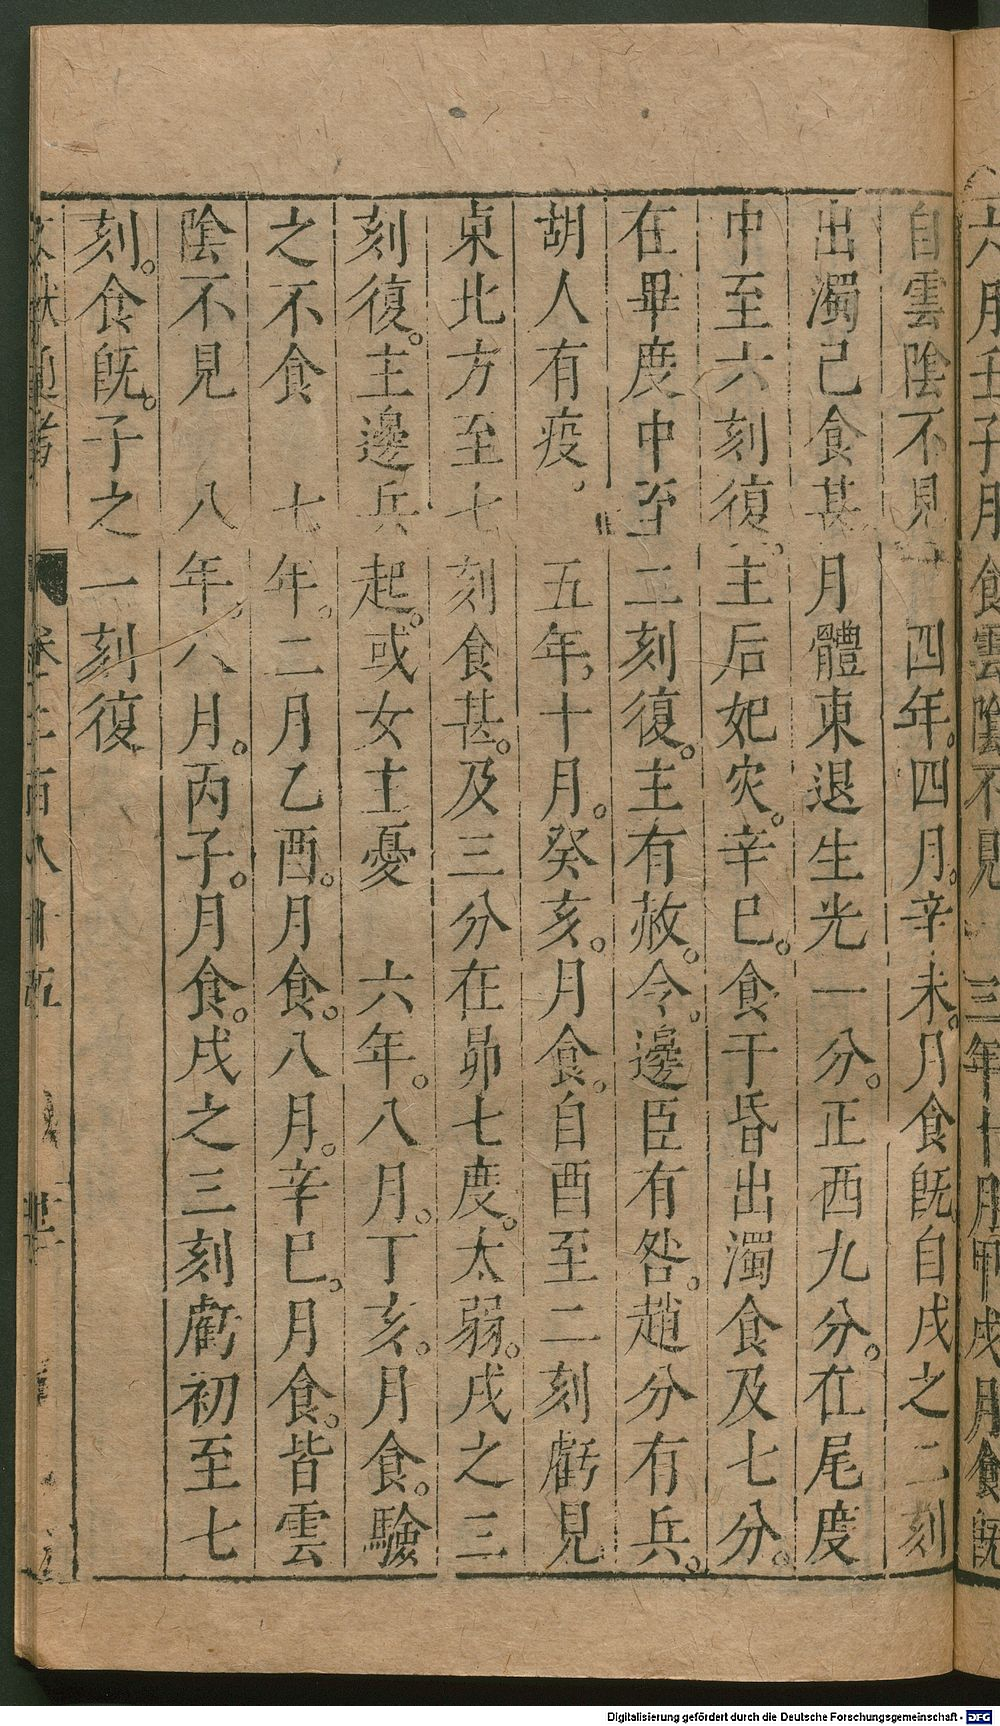 六月壬子月食雲陰不見 三年十月甲戌月食旣
自雲陰不見 四年四月。辛未。月食旣。自戌之二刻
出濁已食甚月體東退生光一分。正西九分。在尾度
中至六刻復。主后妃灾。辛巳。食于昏出濁食及七分。
在畢度中至二刻復。主有赦令。邊臣有咎。趙分有兵。
胡人有疫。 五年十月。癸亥。月食。自酉至二刻虧見
東北方至七刻食甚。及三分在昴七度。太弱。戌之三
刻復。主邊兵起。或女主憂 六年。八月。丁亥。月食。驗
之不食 七年。二月乙酉。月食。八月。辛巳。月食。皆雲
陰不見 八年。八月。丙子。月食。戌之三刻虧初至七
刻。食旣。子之一刻復
文獻通考 卷二百八十五
Digitalisierung gefördert durch die Deutsche Forschungsgemeinschaft - DFG